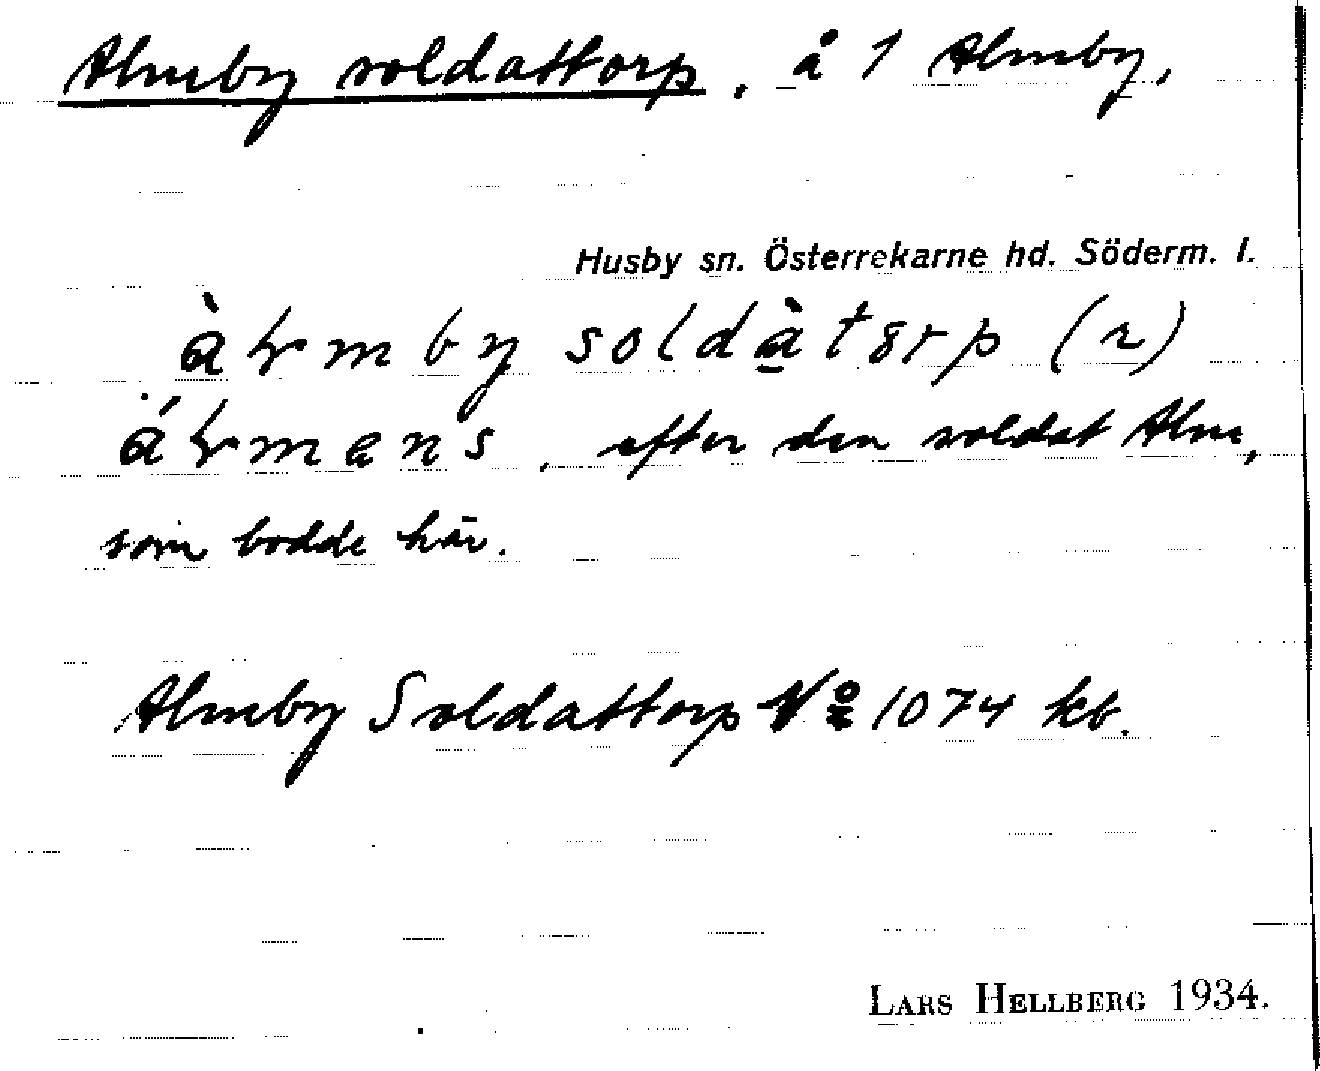 Almby soldattorp, å 1 Almby,
Husby sn. Österrekarne hd. Söderm. l.
àɽmby soldàtȣrp (r)
áɽmans, efter den soldat Alm,
som bodde här.
Almby Soldattorp No 1074 kb.
LARS HELLBERG 1934.